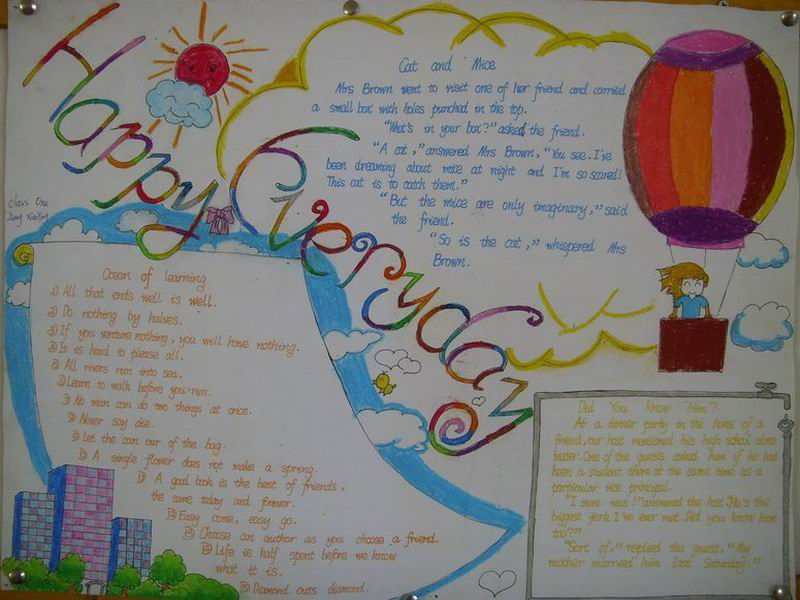 Happy Everyday
Class One
Cat and Mice
Mrs Brown went to visit one of her friend and carried
a small box with holes punched in the top.
"What's in your box?" asked the friend.
"A cat," answered Mrs Brown, "You see. I've
been dreaming about mice at night and I'm so scared!
This cat is to catch them."
"But the mice are only imaginary," said
the friend.
"So is the cat," whispered Mrs
Brown.
Ocean of learning
1) All that ends well is well.
2) Do nothing by halves.
3) If you venture nothing, you will have nothing.
It is hard to please all.
All rivers run into sea.
Learn to walk before you run.
No man can do two things at once.
Never say die.
Let the can our of the bag.
A single flower does not make a spring.
A good book is the best of friends,
the same today and forever.
Easy come, easy go.
Choose an author as you choose a friend.
Life is half spent before we know
what it is.
Diamond outs diamond.
Did You Know Him?
At a dinner party in the home of a
friend, our host mentioned his high school alma
mater. One of the guests asked him if he had
been a student there at the same time as a
particular was principal.
"I sure was!" answered the host. "He's the
biggest jerk I've ever met. Did you know him
too?"
"Sort of," replied the guest, "My
mother married him last Saturday."